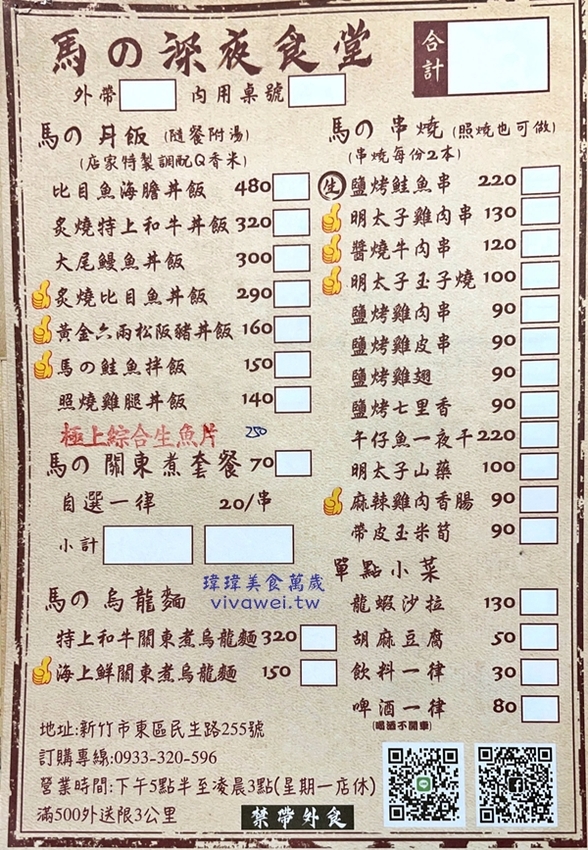 馬の深夜食堂
合計
外帶 內用桌號
馬の丼飯 (隨餐附湯)
(店家特製調配Q香米)
比目魚海膽丼飯 480
炙燒特上和牛丼飯 320
大尾鰻魚丼飯 300
炙燒比目魚丼飯 290
黃金六兩松阪豬丼飯 160
馬の鮭魚拌飯 150
照燒雞腿丼飯 140
極上綜合生魚片 250
馬の關東煮套餐 70
自選一律 20/串
小計
瑋瑋美食萬歲
vivawei.tw
馬の烏龍麵
特上和牛關東煮烏龍麵 320
海上鮮關東煮烏龍麵 150
馬の串燒 (照燒也可做)
(串燒每份2本)
鹽烤鮭魚串 220
明太子雞肉串 130
醬燒牛肉串 120
明太子玉子燒 100
鹽烤雞肉串 90
鹽烤雞皮串 90
鹽烤雞翅 90
鹽烤七里香 90
午仔魚一夜干 220
明太子山藥 100
麻辣雞肉香腸 90
帶皮玉米筍 90
單點小菜
龍蝦沙拉 130
胡麻豆腐 50
飲料一律 30
啤酒一律 80
(喝酒不開車)
地址:新竹市東區民生路255號
訂購專線:0933-320-596
營業時間:下午5點半至凌晨3點(星期一店休)
滿500外送限3公里
禁帶外食